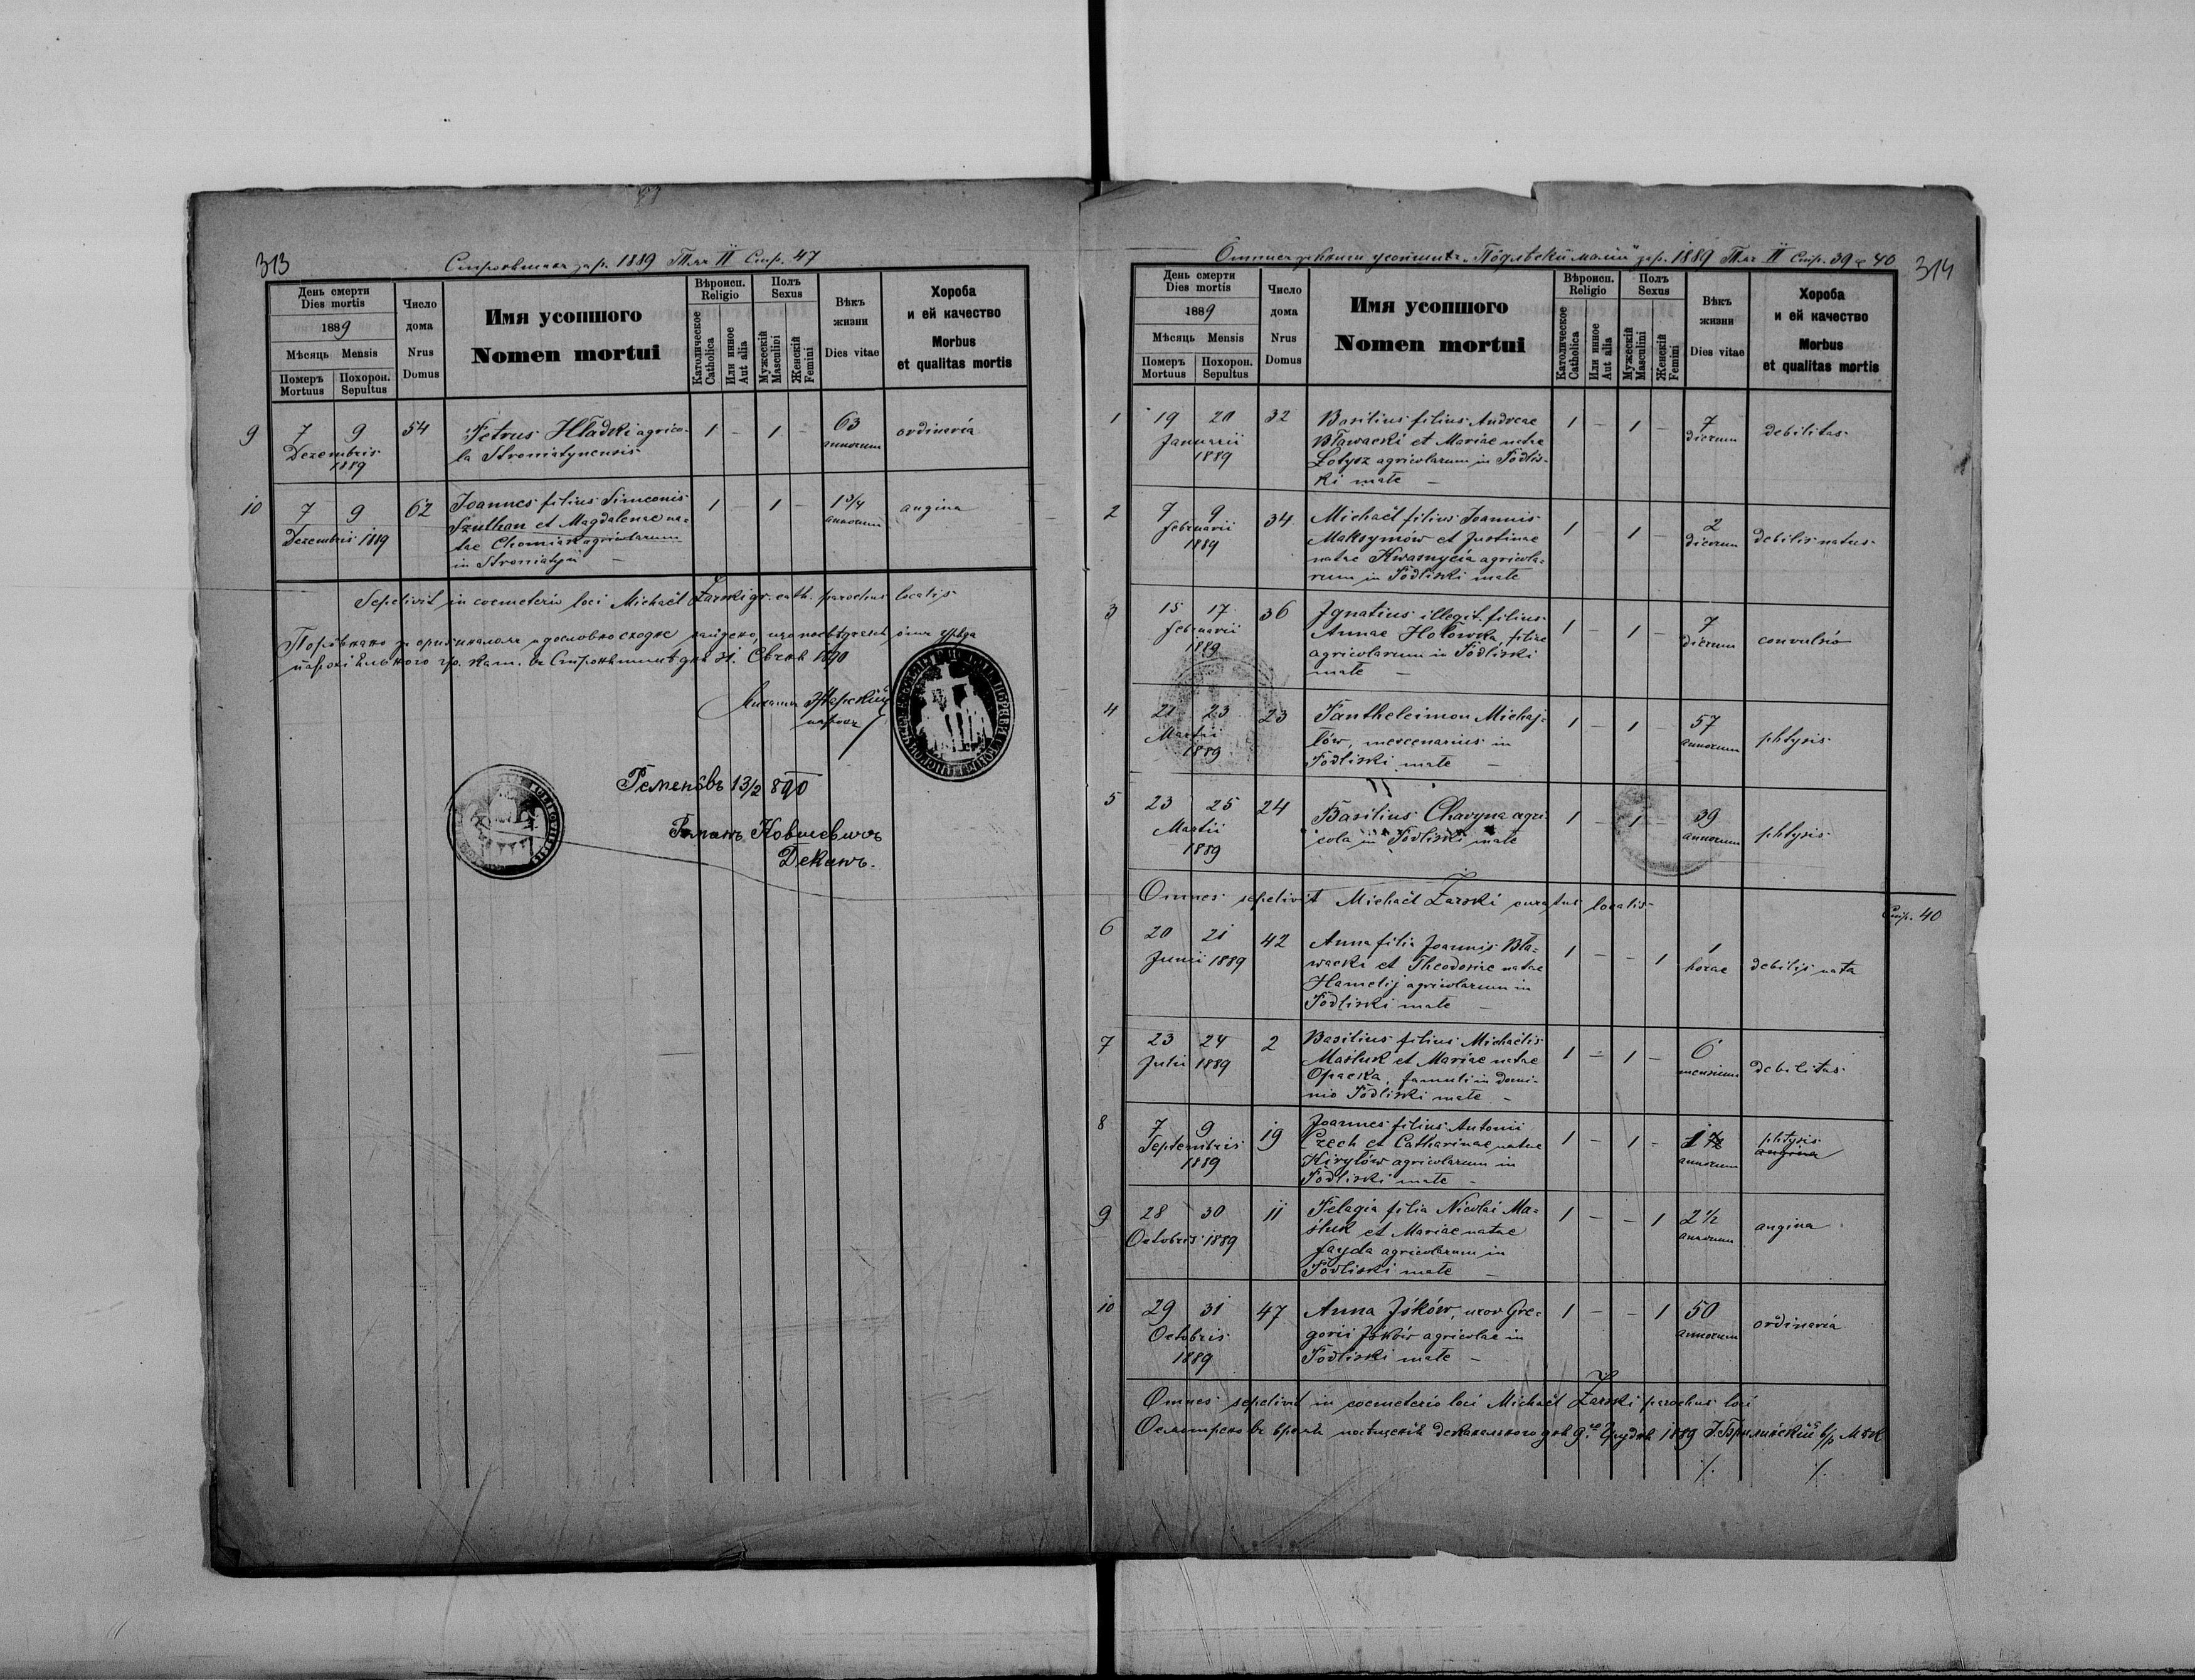 313
Строньтин за р. 1889 Том II Стр. 47
День смерти
Dies mortis
1889
Мѣсяць Mensis
Померъ Mortuus
Похорон. Sepultus
Число дома
Nrus Domus
Имя усопшого
Nomen mortui
Вѣроисп.
Religio
Католическое Catholica
Или инное Aut alia
Полъ
Sexus
Мужескій Masculini
Женскій Femini
Вѣкъ жизни
Dies vitae
Хороба
и ей качество
Morbus
et qualitas mortis
9 7 9 54 Petrus Hładki agrico- 1 – 1 – 63 ordinaria
Dezembris la Stroniatynensis annorum
1889
10 7 9 62 Joannes filius Simeonis 1 – 1 – 1 3/4 angina
Szulhan et Magdalenae na- annorum
Dezembris 1889 tae Chomiak agricolarum
in Stroniatyn –
Sepelivit in coemeterio loci Michaël Żarski gr. cath. parochus localis
парохіяльного гр. кат. въ дня 31. Січня 1890
парох
Ременôвъ 13/2 890
Деканъ.
314
за р. 1889 Том II Стр. 39 и 40
День смерти
Dies mortis
1889
Мѣсяць Mensis
Померъ Mortuus
Похорон. Sepultus
Число дома
Nrus Domus
Имя усопшого
Nomen mortui
Вѣроисп.
Religio
Католическое Catholica
Или инное Aut alia
Полъ
Sexus
Мужескій Masculini
Женскій Femini
Вѣкъ жизни
Dies vitae
Хороба
и ей качество
Morbus
et qualitas mortis
1 19 20 32 Basilius filius Andreae 1 – 1 – 7 debilitas
Januarii Bławacki et Mariae natae dierum
1889 Łotysz agricolarum in Pódlis-
ki małe –
2 7 9 34 Michaël filius Joannis 1 – 1 – 2 debilis natus
Februarii Maksymów et Justinae dierum
1889 natae Kwasnycia agricola-
rum in Pódliski małe
3 15 17 36 Ignatius illegit. filius 1 – 1 – 7 convulsio
Februarii Annae Hołowka, filiae dierum
1889 agricolarum in Pódliski
małe –
4 21 23 23 Pantheleimon Michaj- 1 – 1 – 57 phtysis
Martii łów, mercenarius in annorum
1889 Pódliski małe –
5 23 25 24 Basilius Chavyna agri- 1 – 1 – 39 phtysis
Martii cola in Pódliski małe annorum
1889
Omnes sepelivit Michaël Żarski curatus localis
Стр. 40
6 20 21 42 Anna filia Joannis Bła- 1 – – 1 1 debilis nata
Junii 1889 wacki et Theodosiae natae horae
Hamelij agricolarum in
Pódliski małe –
7 23 24 2 Basilius filius Michaëlis 1 – 1 – 6 debilitas
Julii 1889 Maśluk et Mariae natae mensium
Opacka, famuli in domi-
nio Pódliski małe –
8 7 9 19 Joannes filius Antonii 1 – 1 – phtysis
Septembris Czech et Catharinae natae annorum angina
1889 Kiryłów agricolarum in
Pódliski małe –
9 28 30 11 Pelagia filia Nicolai Ma- 1 – – 1 2 1/2 angina
Octobris 1889 śluk et Mariae natae annorum
Fayda agricolarum in
Pódliski małe –
10 29 31 47 Anna Jśków, uxor Gre- 1 – – 1 50 ordinaria
Octobris gorii Jśków agricolae in annorum
1889 Pódliski małe –
Omnes sepelivit in coemeterio loci Michaël Żarski parochus loci
деканального дня 9. Грудня 1889